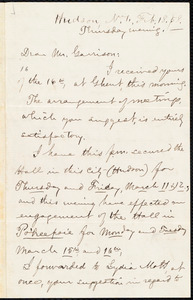 Hudson, N.Y., Feb. 18,
Thursday evening.
Dear Mr. Garrison:
I received yours
of the 16th, at Ghent, this morning.
The arrangement of meetings,
which you suggest, is entirely
satisfactory.
I have this p.m. secured the
Hall in this city (Hudson) for
Thursday and Friday, March 11, 12,
and this evening have effected an
engagement of the Hall in
Po'keepsie for Monday and Tuesday
March 15th and 16th.
I forwarded to Lydia Mott at
once, your suggestion in regard to